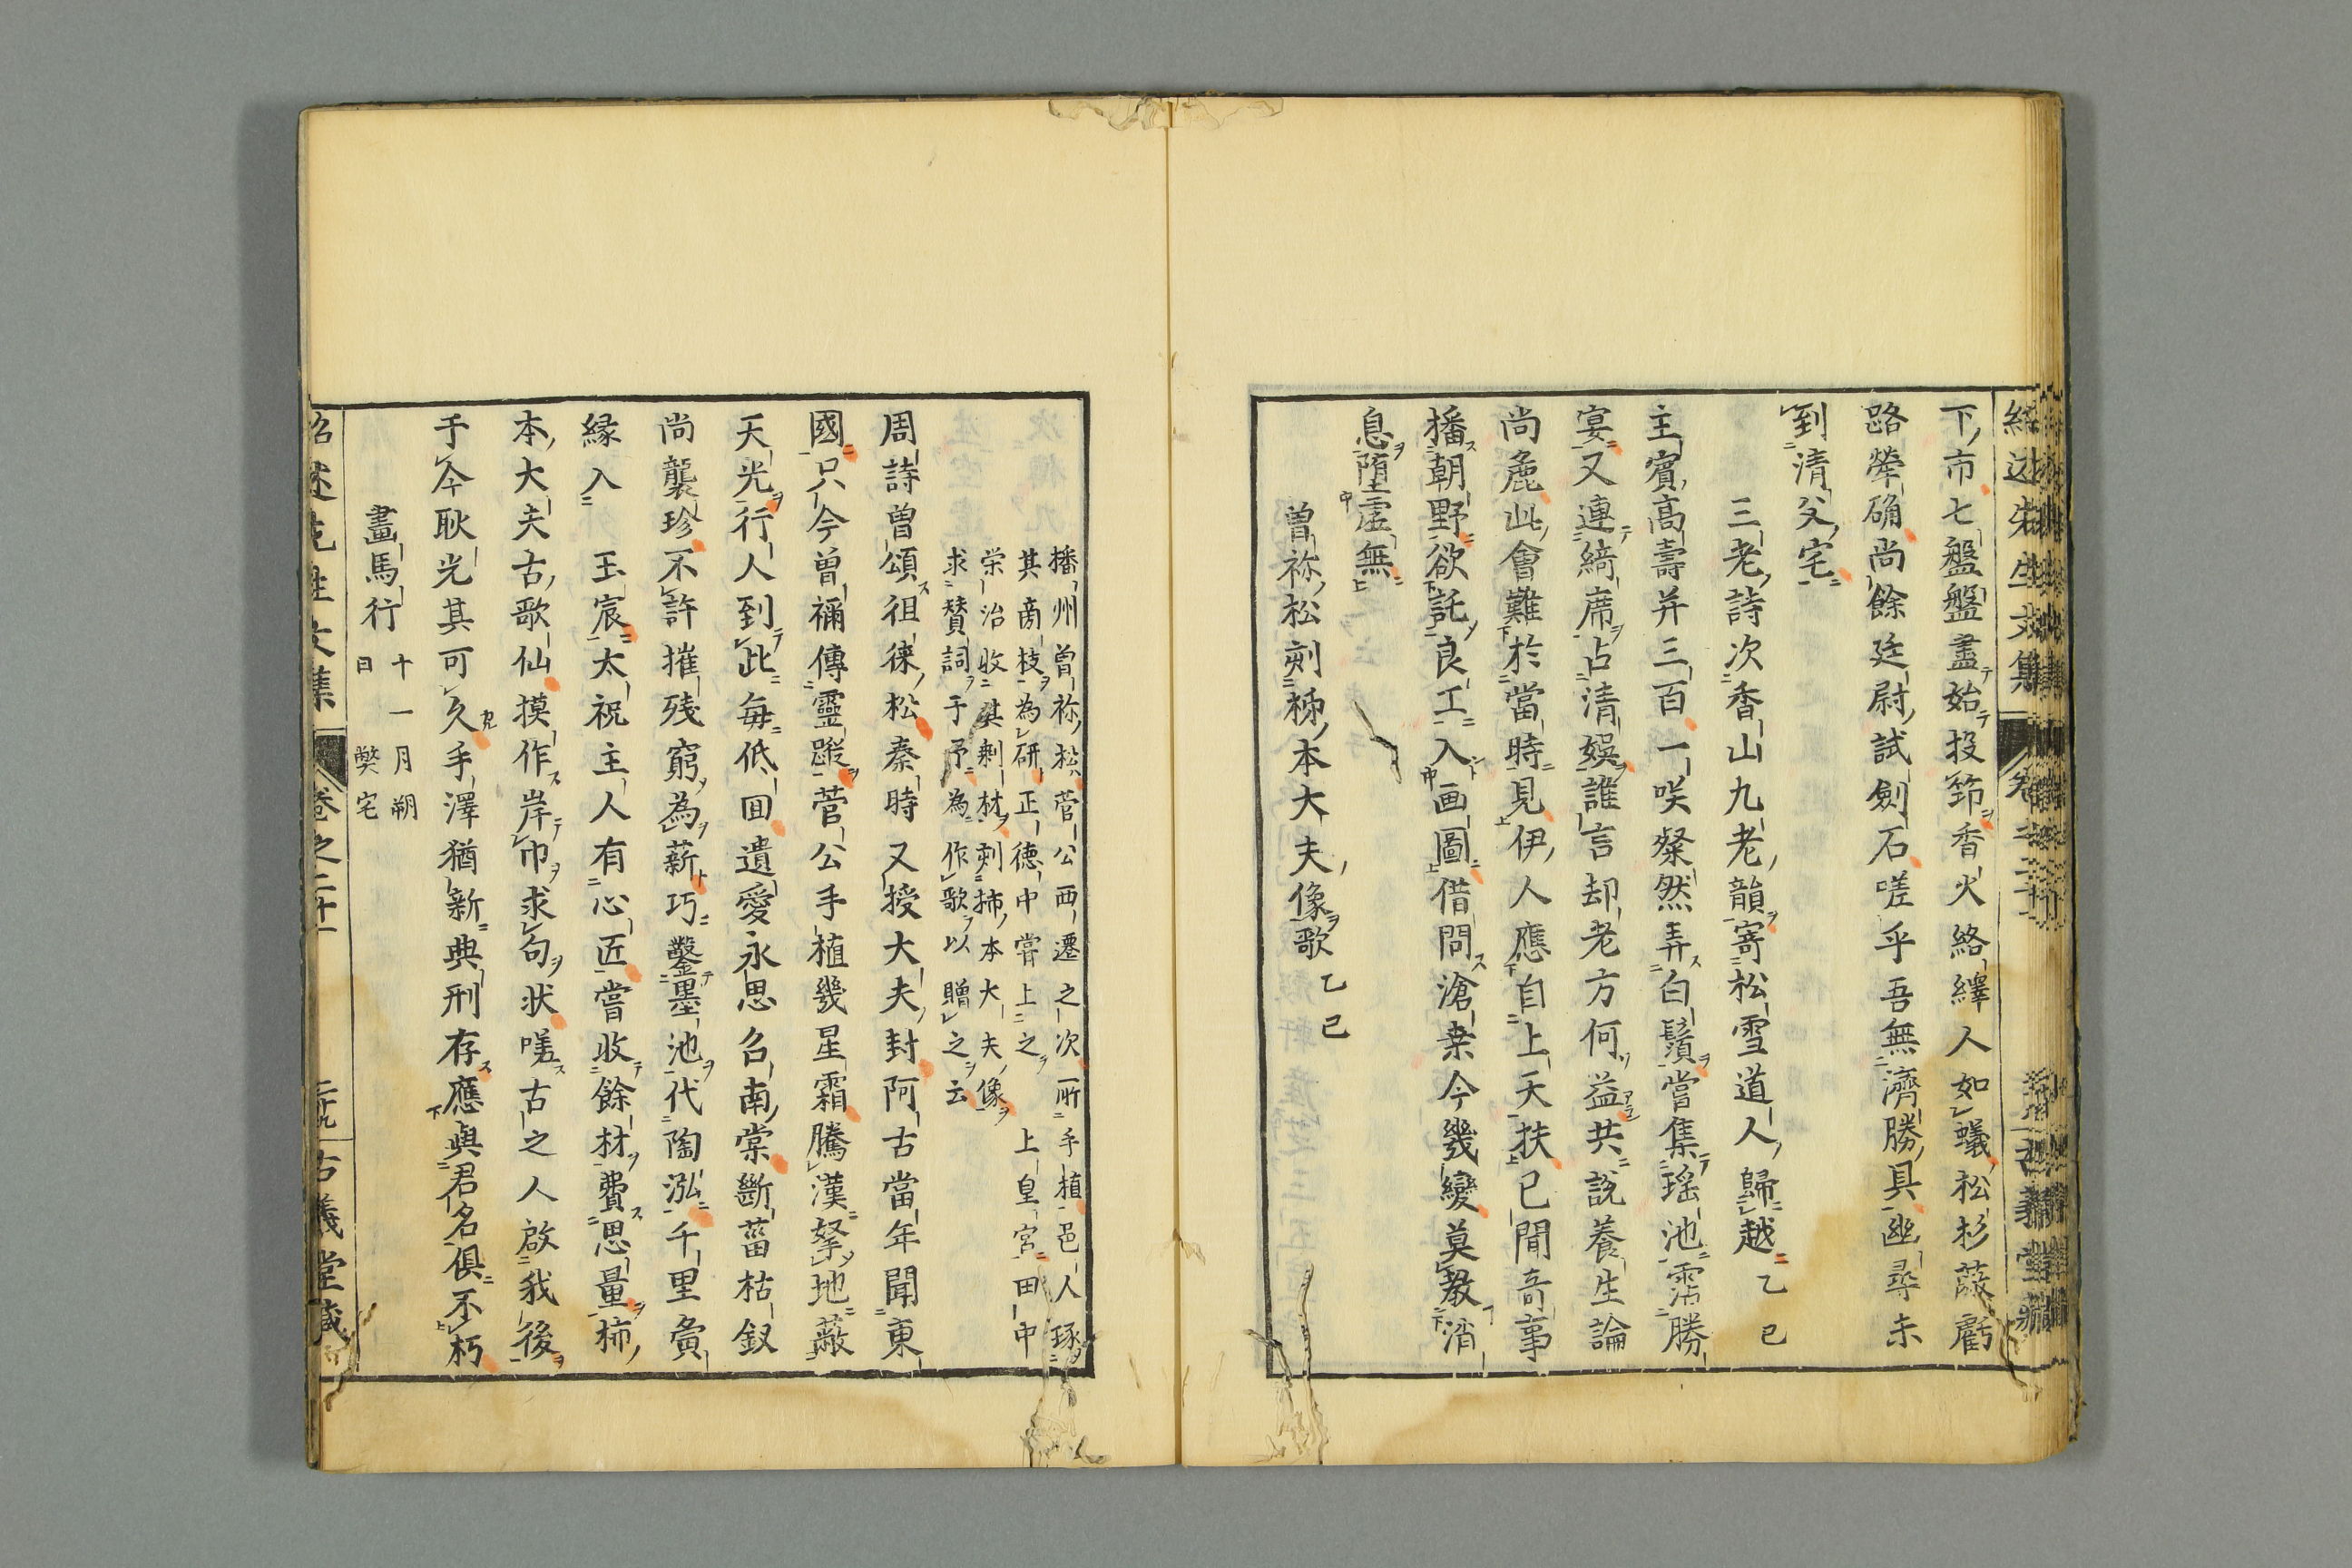 下市七盤盤盡始投筇香火絡繹人如蟻松杉蔽虧
路犖确尚餘廷尉試劍石嗟乎吾無濟勝具幽尋未
到清父宅
三老詩次香山九老韻寄松雪道人歸越 乙巳
主賓高壽并三百一咲粲然弄白鬚嘗集瑤池霑勝
宴又連綺席占清娯誰言却老方何益共說養生論
尚麁此會難於當時見伊人應自上天扶已聞奇事
播朝野欲託良工入画圖借問滄桒今幾變莫教消
息墮虛無
曽祢松剜柹本大夫像歌 乙巳
播州曽祢松菅公西遷之次所手植邑人琢
其南枝為研正德中嘗上之 上皇宮田中
栄治收其剰材刺柹本大夫像
求賛詞于予為作歌以贈之云
周詩曽頌徂徠松秦時又授大夫封阿古當年聞東
國只今曽禰傳靈蹤菅公手植幾星霜騰漢拏地蔽
天光行人到此每低佪遺愛永思召南棠斷菑枯釵
尚襲珍不許摧残窮為薪巧鑿墨池代陶泓千里賫
緣入 玉宸太祝主人有心匠嘗收餘材費思量柹
本大夫古歌仙摸作岸巾求句狀嗟古之人啟我後
于今耿光其可久手澤猶新典刑存應與君名俱不朽
畫馬行 十一月朔日 樊宅
紹述先生文集 卷之二十一 二十九 古義堂藏